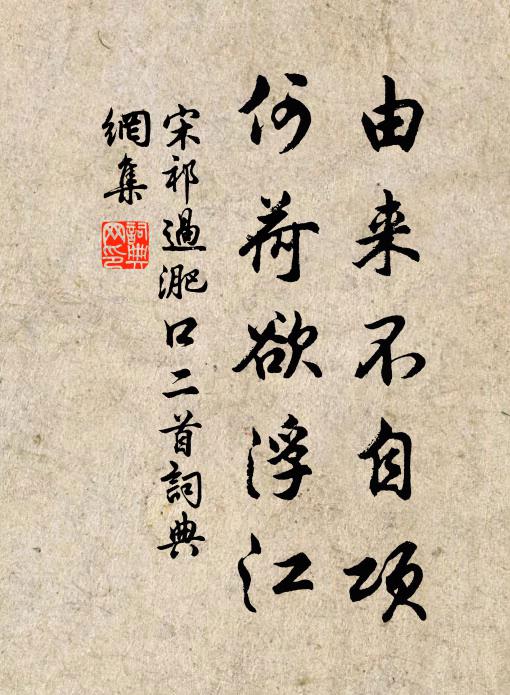 由来不自项
何荷欲浮江
宋祁過淝口二首詞典
網集
詞典
网印